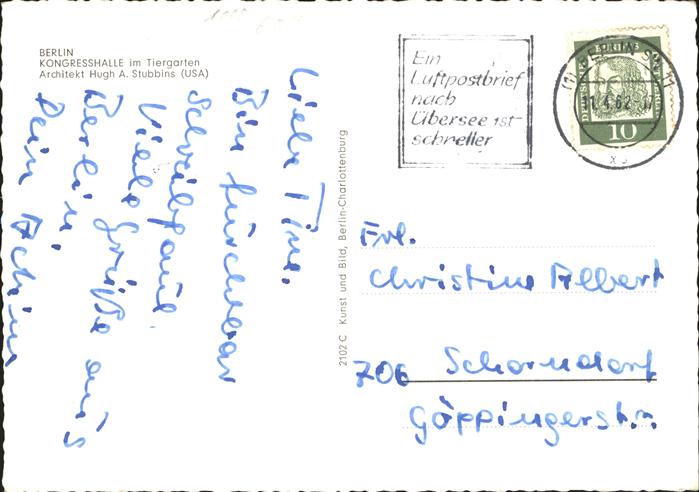 BERLIN
KONGRESSHALLE im Tiergarten
Architekt Hugh A. Stubbins (USA)
Liebe Tine.
Bin furchtbar
schreibfaul.
Viele Grüße aus
Berlin.
Dein Achim
2102 C Kunst und Bild, Berlin-Charlottenburg
Ein
Luftpostbrief
nach
Übersee ist
schneller
(1) BERLIN SW 11
11.4.62
10
Frl.
Christine Albert
706 Schorndorf
Göppingerstr.